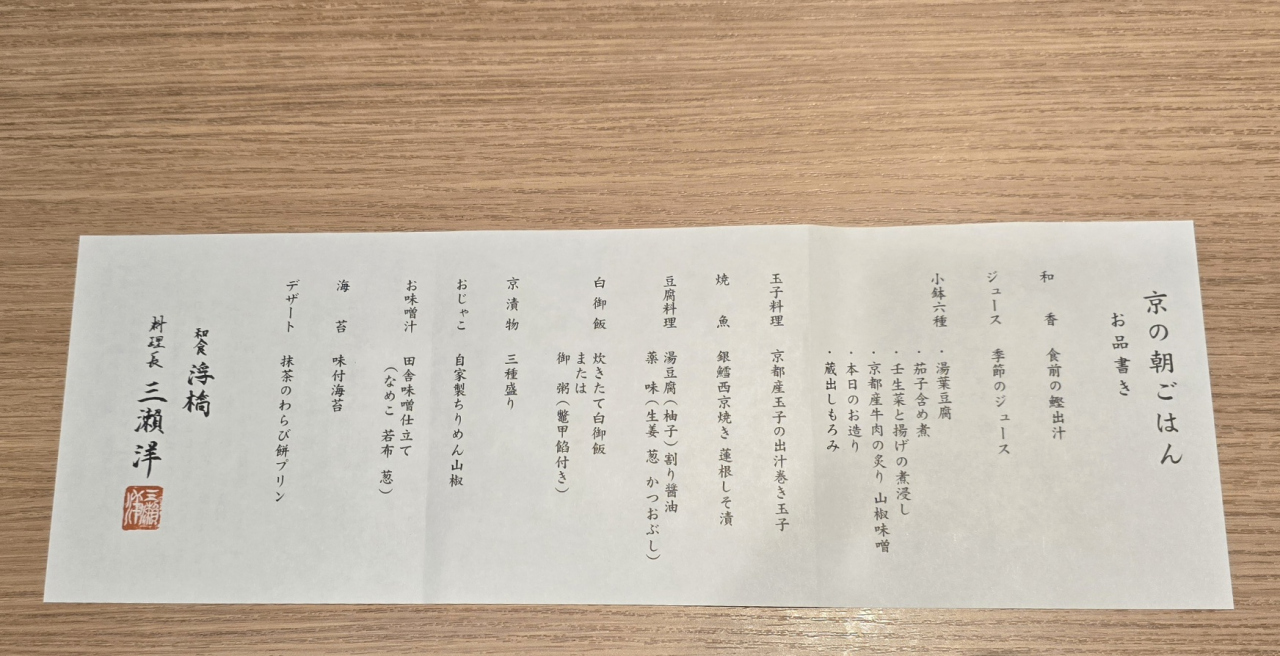 京の朝ごはん
お品書き
和香 食前の鰹出汁
ジュース 季節のジュース
小鉢六種 ・湯葉豆腐
・茄子含め煮
・壬生菜と揚げの煮浸し
・京都産牛肉の炙り 山椒味噌
・本日のお造り
・蔵出しもろみ
玉子料理 京都産玉子の出汁巻き玉子
焼魚 銀鱈西京焼き 蓮根しそ漬
豆腐料理 湯豆腐(柚子)割り醤油
薬味(生姜 葱 かつおぶし)
白御飯 炊きたて白御飯
または
御粥(鼈甲餡付き)
京漬物 三種盛り
おじゃこ 自家製ちりめん山椒
お味噌汁 田舎味噌仕立て
(なめこ 若布 葱)
海苔 味付海苔
デザート 抹茶のわらび餅プリン
和食 浮橋
料理長 三瀬洋